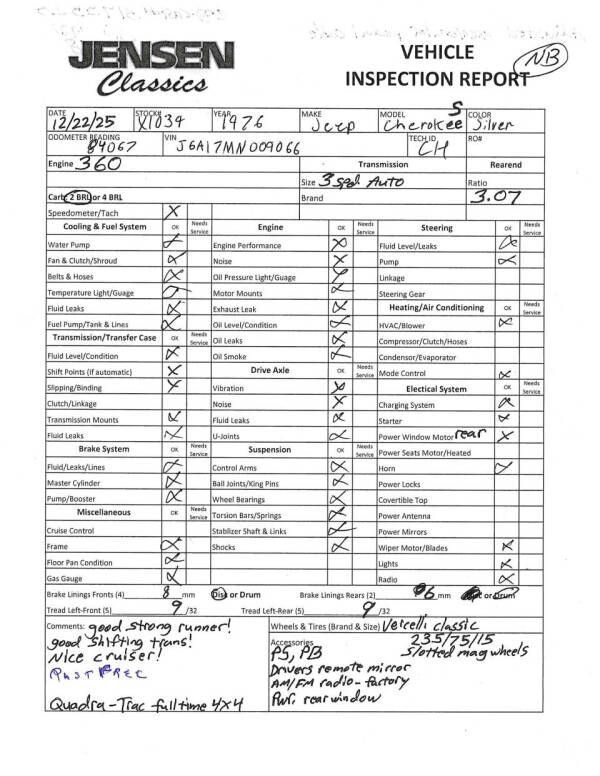 JENSEN
Classics
VEHICLE
INSPECTION REPORT
NB
DATE STOCK# YEAR MAKE MODEL COLOR
12/22/25 X1034 1976 Jeep Cherokee S Silver
ODOMETER READING VIN TECH ID RO#
84067 J6A17MN009066 CH
Engine 360 Transmission Rearend
Size 3 spd. Auto Ratio
Carb 2 BRL or 4 BRL Brand 3.07
Speedometer/Tach X
Cooling & Fuel System OK Needs Service Engine OK Needs Service Steering OK Needs Service
Water Pump X Engine Performance X Fluid Level/Leaks X
Fan & Clutch/Shroud X Noise X Pump X
Belts & Hoses X Oil Pressure Light/Guage X Linkage
Temperature Light/Guage X Motor Mounts X Steering Gear
Fluid Leaks X Exhaust Leak X Heating/Air Conditioning OK Needs Service
Fuel Pump/Tank & Lines X Oil Level/Condition X HVAC/Blower X
Transmission/Transfer Case OK Needs Service Oil Leaks X Compressor/Clutch/Hoses
Fluid Level/Condition X Oil Smoke X Condensor/Evaporator
Shift Points (if automatic) X Drive Axle OK Needs Service Mode Control X
Slipping/Binding X Vibration X Electical System OK Needs Service
Clutch/Linkage Noise X Charging System X
Transmission Mounts X Fluid Leaks X Starter X
Fluid Leaks X U-Joints X Power Window Motor rear X
Brake System OK Needs Service Suspension OK Needs Service Power Seats Motor/Heated
Fluid/Leaks/Lines X Control Arms X Horn X
Master Cylinder X Ball Joints/King Pins X Power Locks
Pump/Booster X Wheel Bearings X Covertible Top
Miscellaneous OK Needs Service Torsion Bars/Springs X Power Antenna
Cruise Control Stablizer Shaft & Links X Power Mirrors
Frame X Shocks X Wiper Motor/Blades X
Floor Pan Condition X Lights X
Gas Gauge X Radio X
Brake Linings Fronts (4) 8 mm Disc or Drum Brake Linings Rears (2) 6 mm or Drum
Tread Left-Front (5) 9 /32 Tread Left-Rear (5) 9 /32
Comments: good strong runner! Wheels & Tires (Brand & Size) Vercelli classic
good shifting trans! Accessories 235/75/15
Nice cruiser! PS, PB Slotted mag wheels
PAST REC Drivers remote mirror
AM/FM radio - factory
Quadra-Trac fulltime 4X4 Pwr. rear window